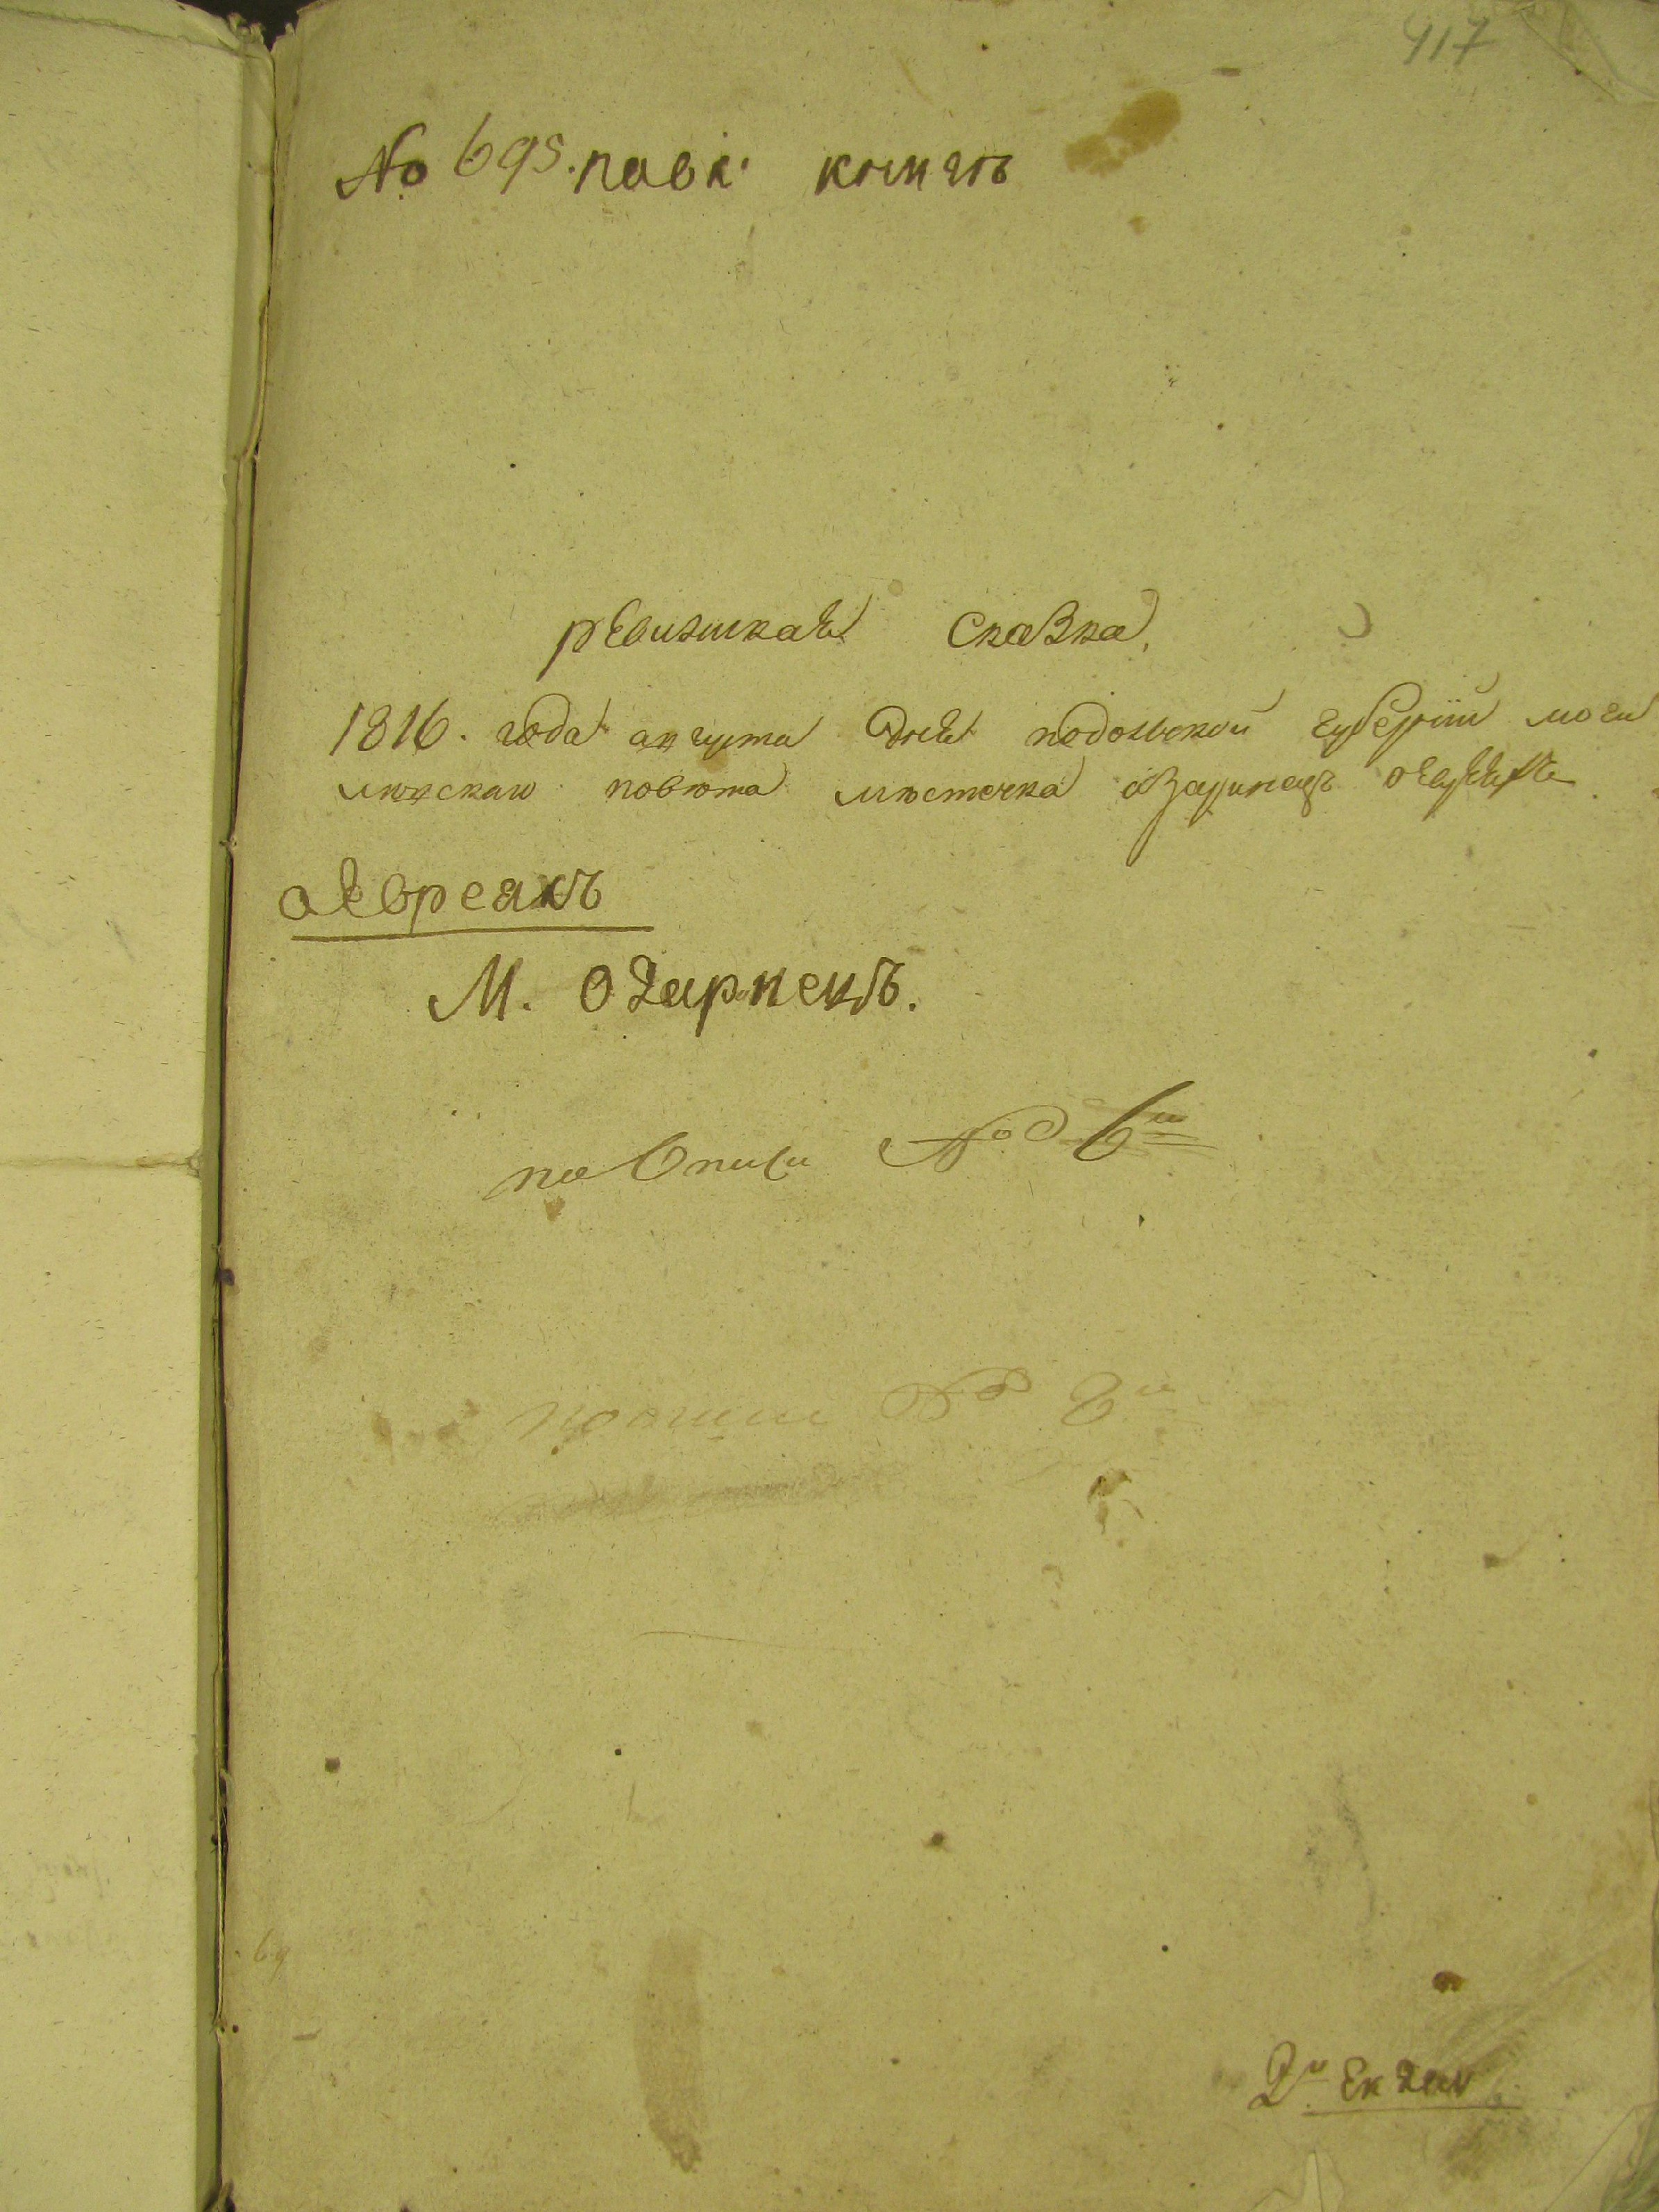 417
№ 695. павк. комл. гоъ
ревизкая сказка,
1816. года августа дня подольской губернии моги
ликскаго повѣта мѣстечка озаринецъ
о евреяхъ
М. Озаринецъ.
по описи № 6й
по описи №
2й Екзем